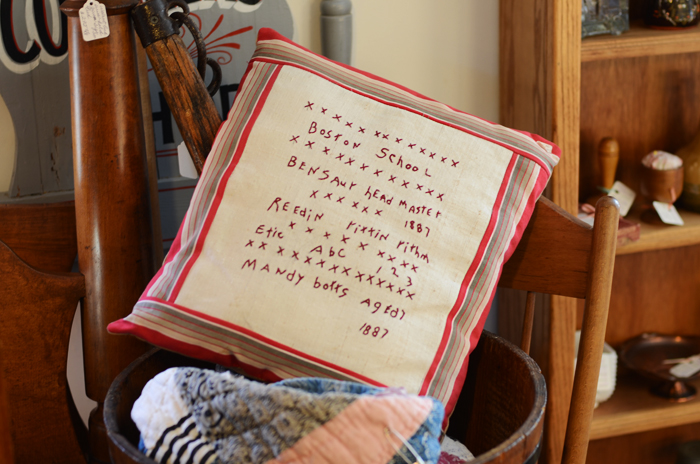 x x x x x x x x x x x x x
Boston School
x x x x x x x x x x x x
BENSaur head master
x x x x x x 1887
REEDIN rittin rithm
Etic x x x x x x x x x
Abc 1 2 3
x x x x x x x x x x x x x x
Mandy botts aged7
1887